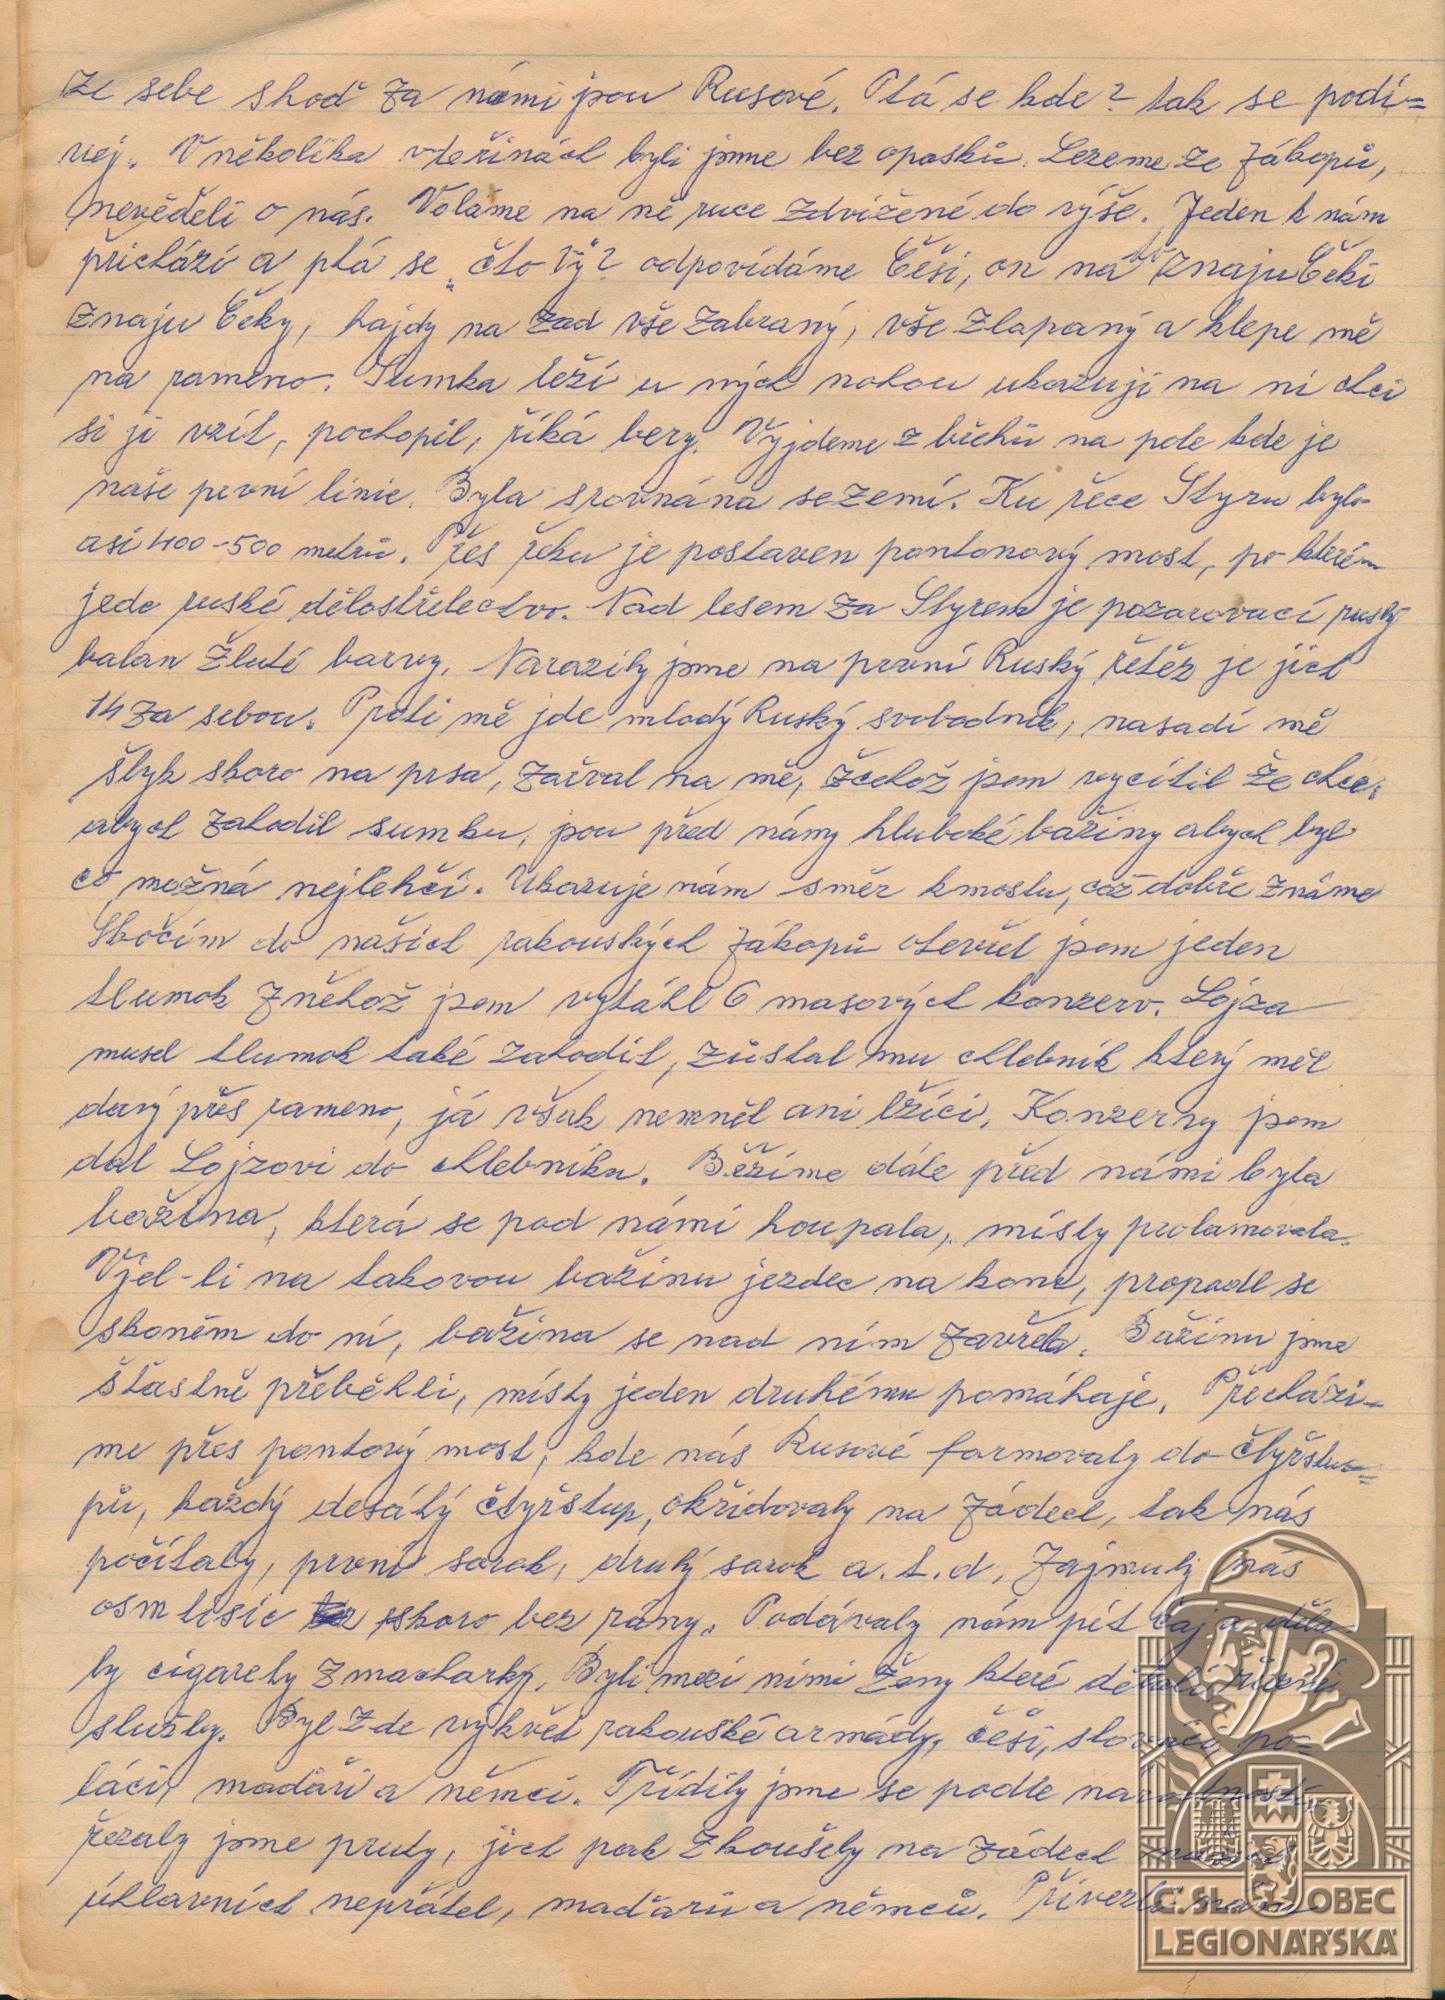 ze sebe shoď za námi jsou Rusové. Ptá se kde? tak se podí-
vej. V několika vteřinách byli jsme bez opasků. Lezeme ze zákopů,
nevěděli o nás. Voláme na ně ruce zdvižené do výše. Jeden k nám
přichází a ptá se „čto Vy"? odpovídáme Češi, on na to znaju Čeki
znaju Čeky, hajdy na zad vše zabraný, vše zlapaný a klepe mě
na rameno. Sumka leží u mých nohou ukazuji na ni chci
si ji vzít, pochopil, říká bery. Vyjdeme z břehů na pole kde je
naše první linie. Byla srovnána se zemí. Ku řece Styru bylo
asi 400-500 metrů. Přes řeku je postaven pontonový most, po kterém
jede ruské dělostřelectvo. Nad lesem za Styrem je pozorovací ruský
balan žluté barvy. Narazily jsme na první Ruský řetěz je jich
14 za sebou. Proti mě jde mladý Ruský svobodník, nasadí mě
štyk skoro na prsa, zařval na mě, zčehož jsem vycítil že chce,
abych zahodil sumku, jsou před námy hluboké bažiny abych byl
co možná nejlehčí. Ukazuje nám směr k mostu, což dobře známe
Skočím do našich rakouských zákopů otevřel jsem jeden
tlumok z něhož jsem vytáhl 6 masových konzerv. Lojza
musel tlumok také zahodit, zůstal mu chlebník který měl
daný přes rameno, já však neměl ani lžíci. Konzervy jsem
dal Lojzovi do chlebníku. Běžíme dále před námi byla
bažina, která se pod námi houpala, místy prolamovala.
Vjel-li na takovou bažinu jezdec na koni, propadl se
skoněm do ní, bažina se nad ním zavřela. Bažinu jsme
šťastně přeběhli, místy jeden druhému pomáhaje. Přechází-
me přes pontový most, kde nás Rusové formovaly do čtyřstu-
pů, každý desátý čtyřstup, okřídovaly na zádech, tak nás
počítaly, první sorok, druhý sorok a.t.d. Zajmuly nás
osm tisíc skoro bez rány. Podávaly nám pít čaj a děla-
ly cigarety z machorky. Byli mezi nimi ženy které dělali
služby. Byl zde výkvět rakouské armády, češi, slováci, po-
láci, maďaři a němci. Třídily jsme se podle národnosti,
řezaly jsme pruty, jich pak zkoušely na zádech našich
úhlavních nepřátel, maďarů a němců. Přivezli nám
Č.SL. OBEC
LEGIONÁŘSKÁ